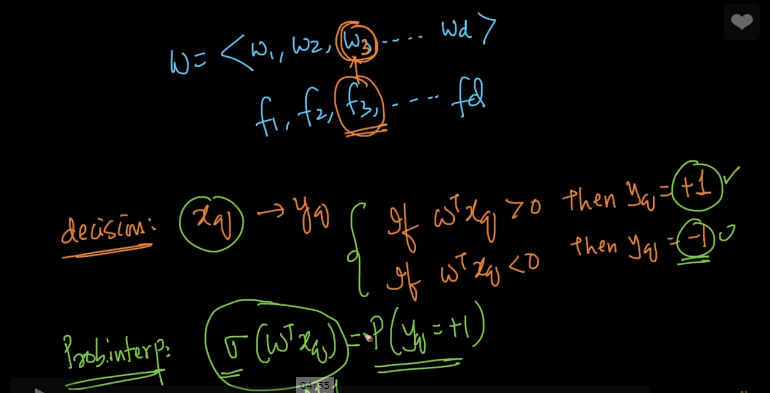 W = < w₁, w₂, w₃, .... wd >
f₁, f₂, f₃, .... fd
decision: xq → yq { If wᵀxq > 0 then yq = +1 ✓
If wᵀxq < 0 then yq = -1
Prob.interp: σ(wᵀxq) = P(yq = +1)
04:55